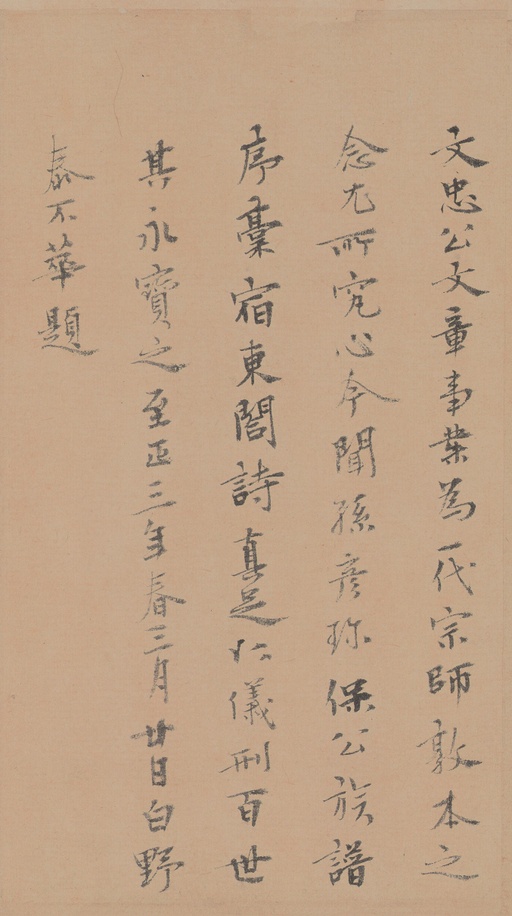 文忠公文章事業為一代宗師敦本之
念尤所究心今聞孫彦珎保公族譜
序藁宿東閣詩真足以儀刑百世
其永寶之至正三年春三月廿日白野
泰不華題